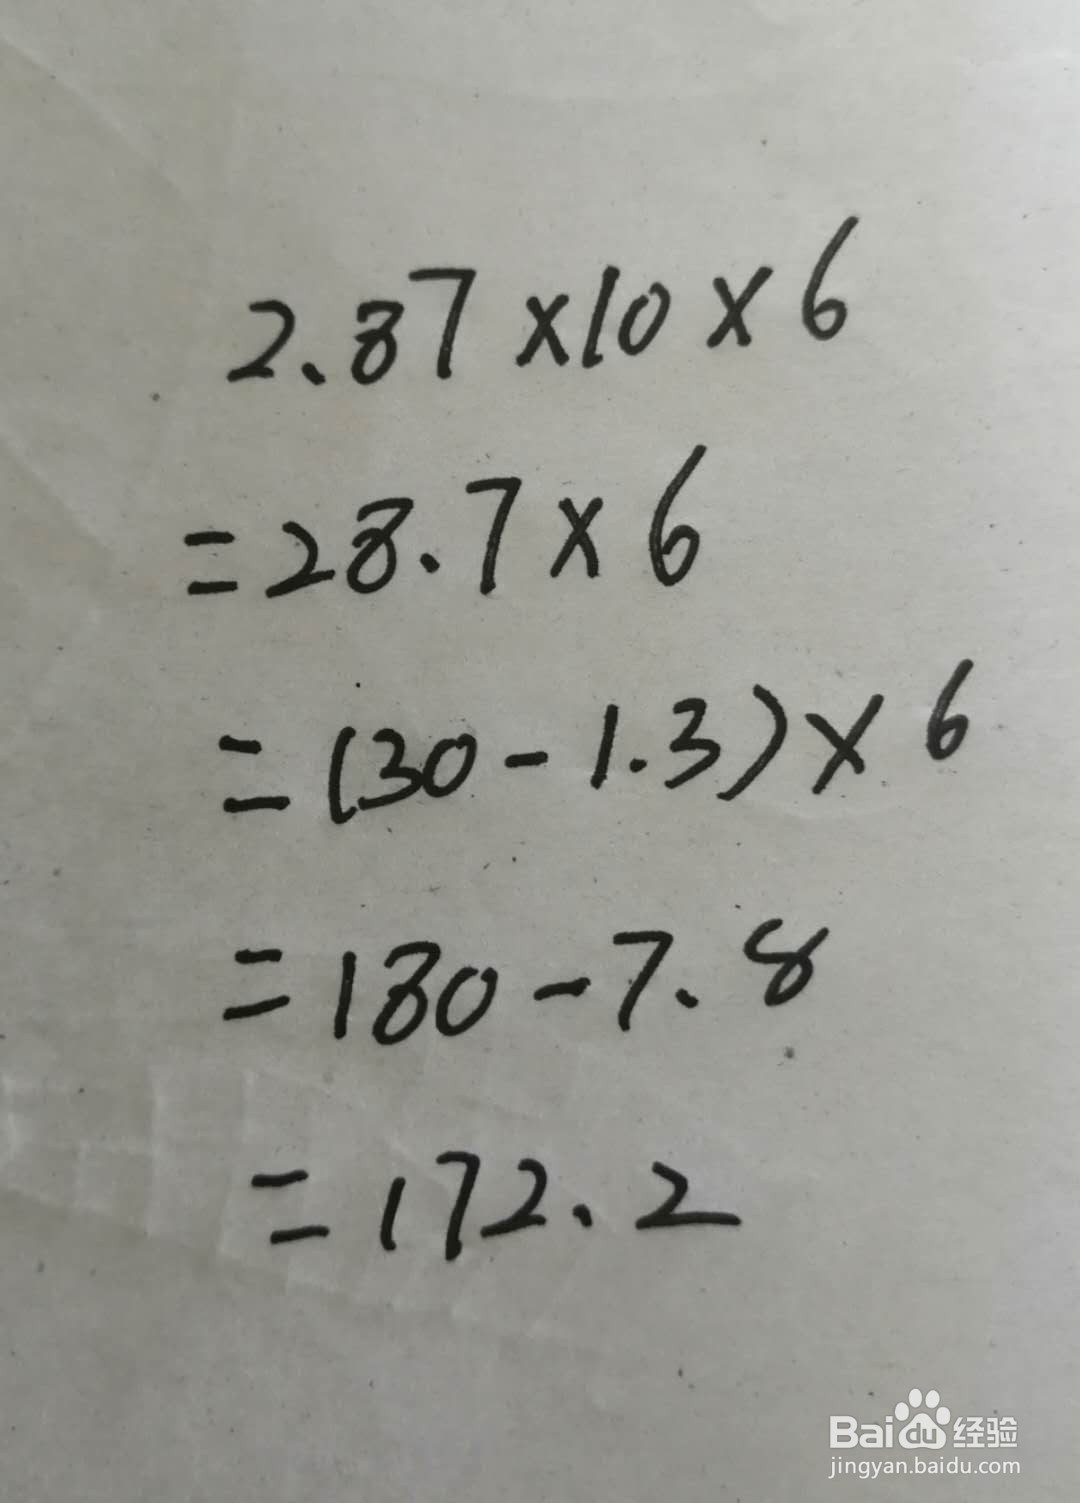 2.87×10×6
=28.7×6
=(30-1.3)×6
=180-7.8
=172.2
Baidu经验
jingyan.baidu.com